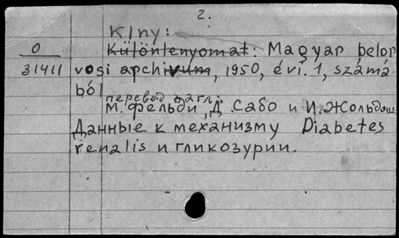 2.
Klny:
O
Különlenyomat: Magyar belor
31411
vosi archivum, 1950, évi. 1, számá
ból
перевод загл.:
М. Фельди, Д Сабо и И. Жольдош
Данные к механизму Diabetes
renalis и гликозурии.